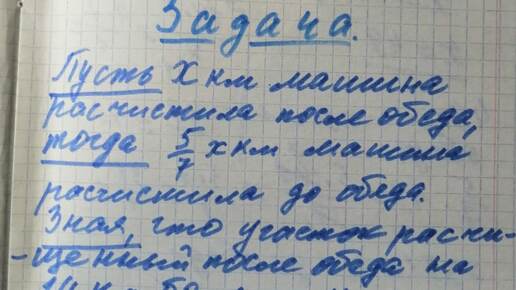 Задача.
Пусть х км машина
расчистила после обеда,
тогда 5/7 х км машина
расчистила до обеда.
Зная, что участок расчи-
-щенный после обеда на